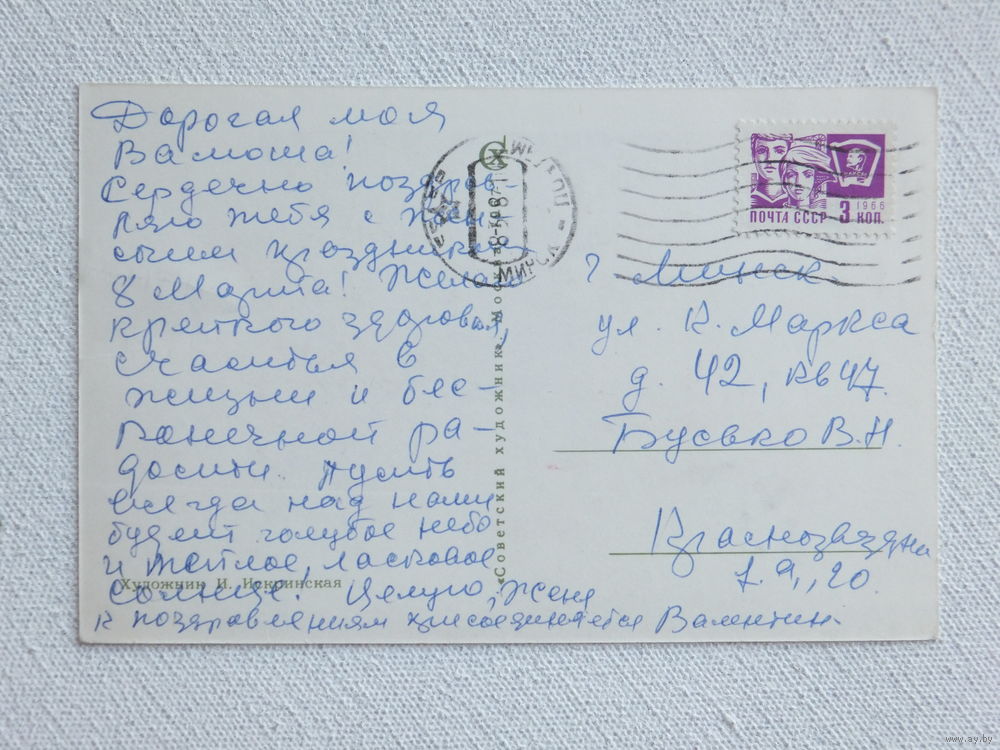 Дорогая моя
Вамоша!
Сердечно поздрав-
ляю тебя с жен-
ским праздником
8 Марта! Желаю
крепкого здоровья,
счастья в
жизни и бес-
конечной ра-
дости. Пусть
всегда над нами
будет голубое небо
и теплое, ласковое
солнце. Целую, Женя
к поздравлениям присоединяется Валентин.
Художник И. Искринская
«Советский художник». Москва
ПОЧТАМТ
МИНСК
ПОЧТА СССР 3 КОП.
1966
г Минск
ул. К. Маркса
д. 42, кв 47
Бусько В.Н.
Краснозвездная
20
www.ay.by